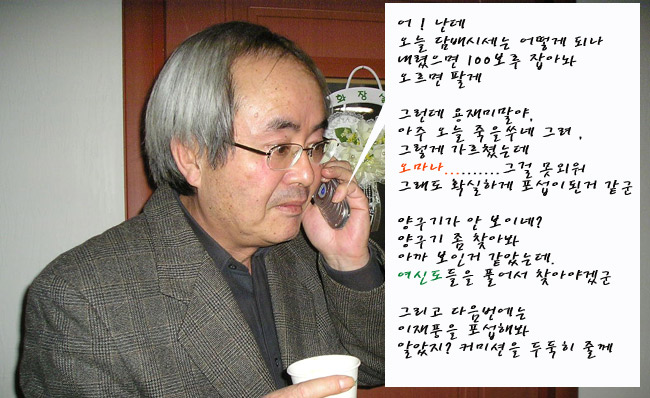 화장실
어 ! 난데
오늘 담배시세는 어떻게 되나
내렸으면 100보루 잡아놔
오르면 팔게
그런데 용재미말야,
아주 오늘 죽을쑤네 그려 ,
그렇게 가르쳤는데
오마나..........그걸 못외워
그래도 확실하게 포섭이된거 같군
양구기가 안 보이네?
양구기 좀 찾아봐
아까 보인거 같았는데.
여신도들을 풀어서 찾아야겠군
그리고 다음번에는
이재풍을 포섭해봐
알았지? 커미션을 두둑히 줄께